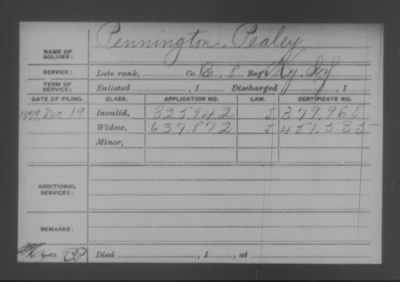 Pennington, Pealey
NAME OF SOLDIER:
SERVICE: Late rank, Co. B, 8 Reg't Ky. Inf
TERM OF SERVICE: Enlisted , 1 Discharged , 1
DATE OF FILING. CLASS. APPLICATION NO. LAW. CERTIFICATE NO.
1879, Dec. 19 Invalid, 325942
Widow, 637,872
Minor,
ADDITIONAL SERVICES:
REMARKS:
Died , 1 , at